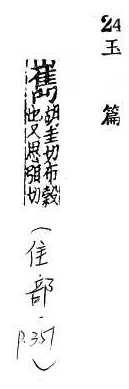 24
玉篇
巂 胡圭切布穀
也又思切
(隹部, p.357)